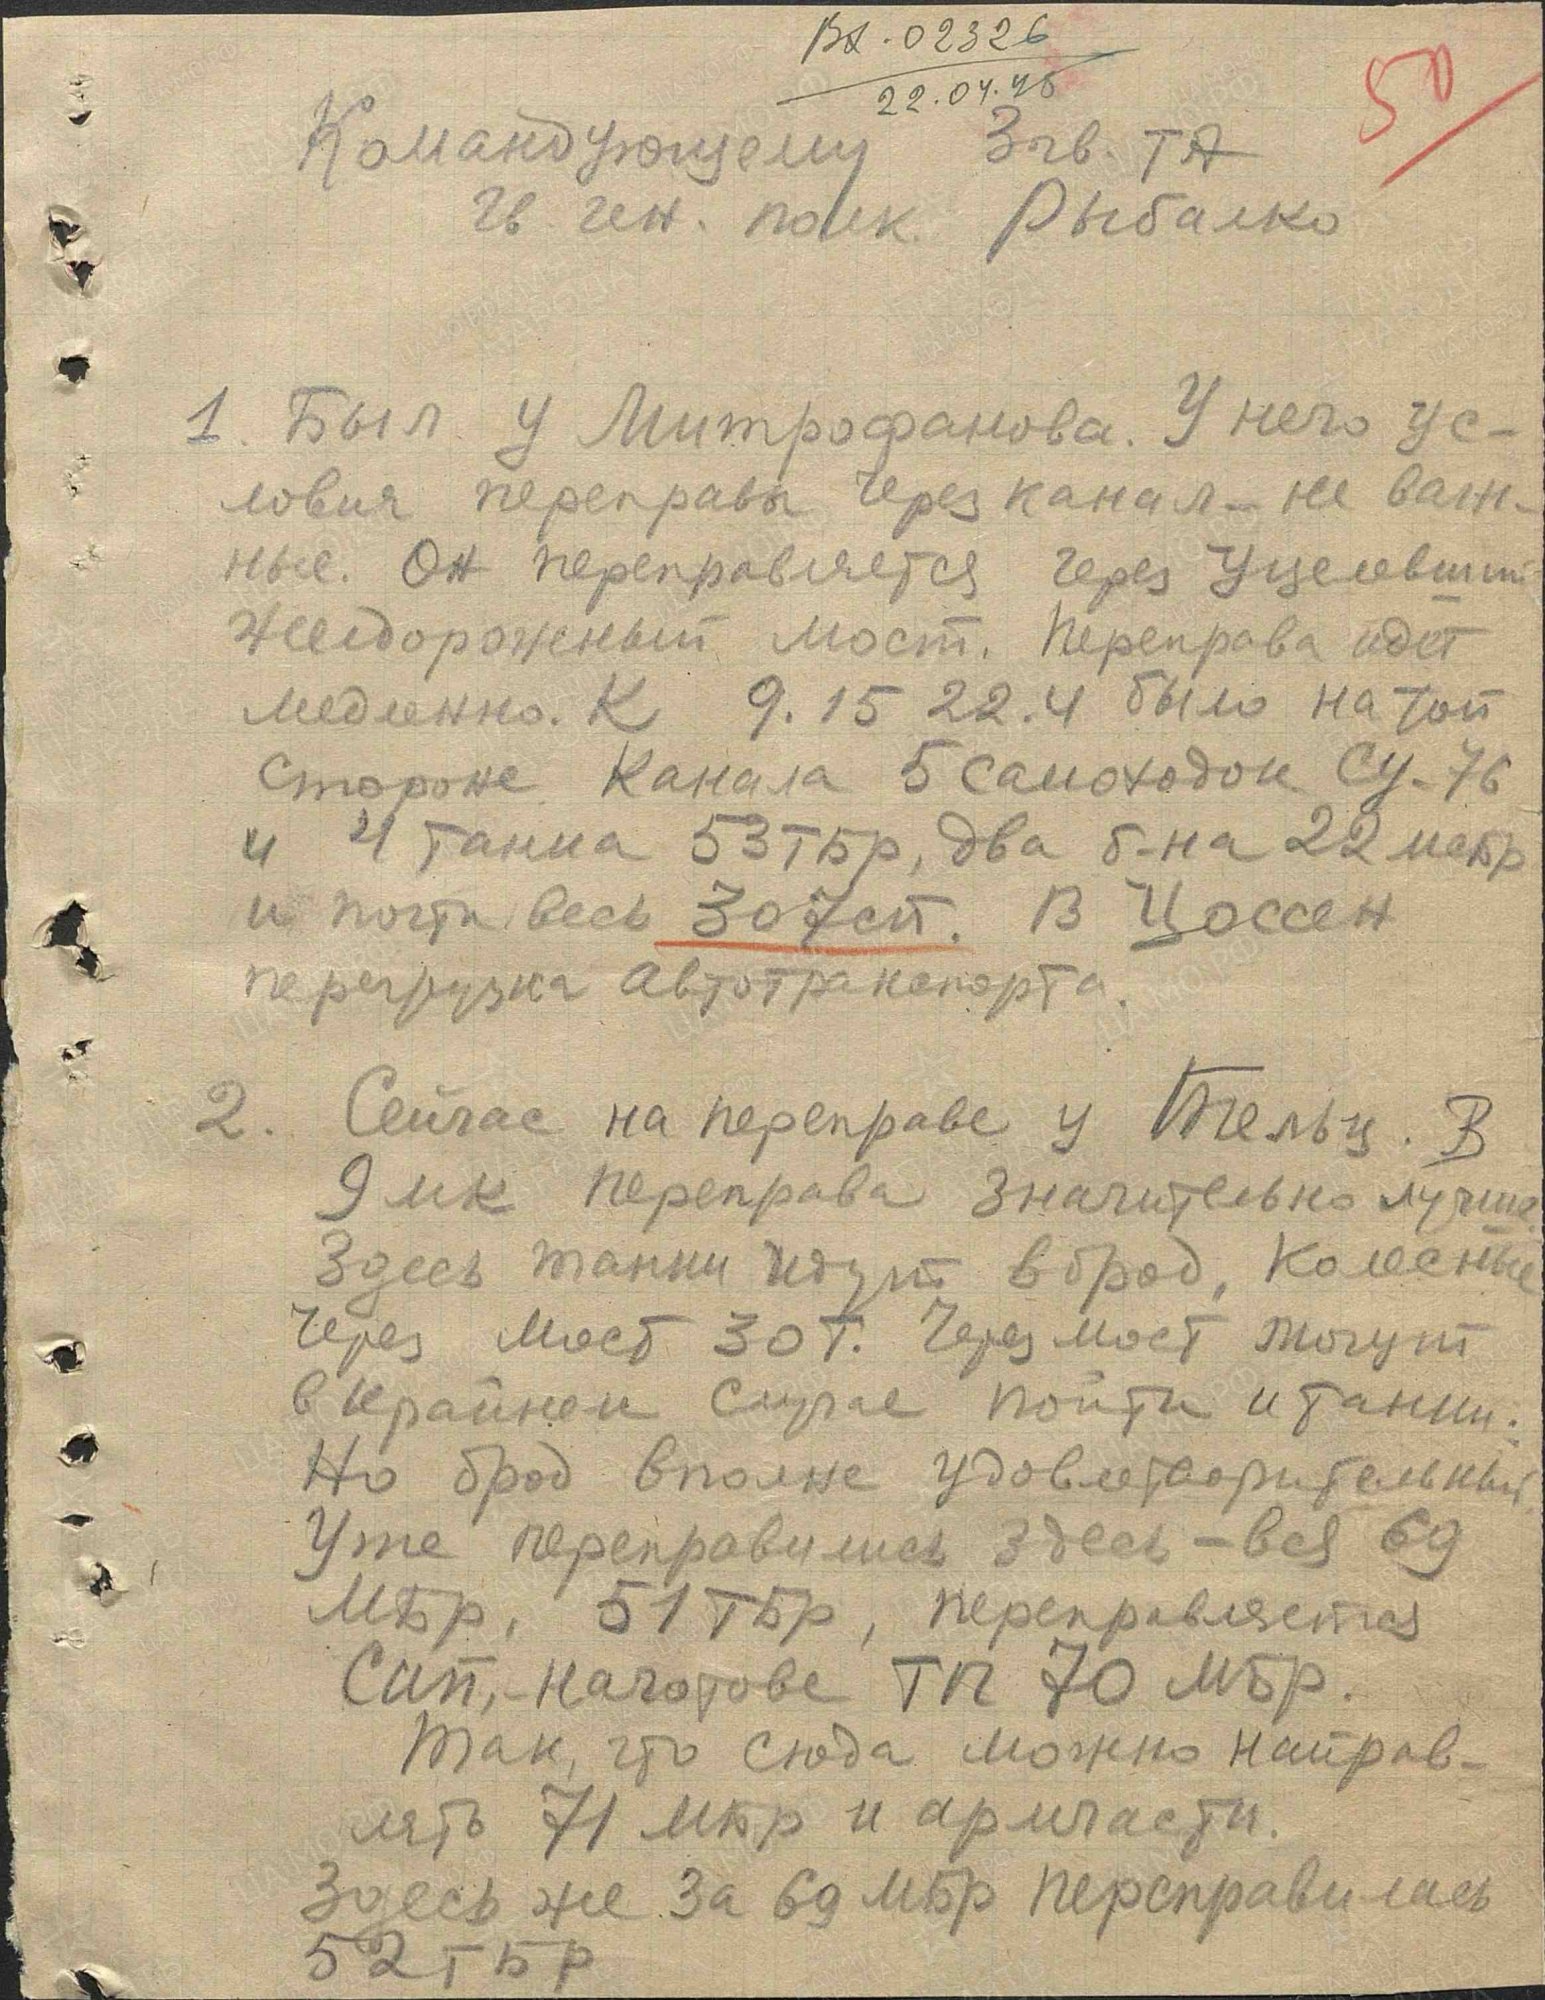 Вх. 02326
22.04.45
50
Командующему 3 гв. ТА
гв. ген. полк. Рыбалко
1. Был у Митрофанова. У него ус-
ловия переправы через канал - не важ-
ные. Он переправляется через уцелевший
желдорожный мост. Переправа идет
медленно. К 9.15 22.4 было на той
стороне канала 5 самоходок Су-76
и 4 танка 53 ТБр, два б-на 22 мсбр
и почти весь 307 сп. В Цоссен
перегрузка автотранспорта.
2. Сейчас на переправе у Тельц. В
9 мк переправа значительно лучше.
Здесь танки идут вброд, колесные
через мост 30 т. Через мост могут
в крайнем случае пойти и танки.
Но брод вполне удовлетворительный.
Уже переправились здесь - вся 69
МБр, 51 ТБр, переправляется
Сап, наготове ТП 70 МБр.
Так, что сюда можно направ-
лять 71 МБр и армчасти.
Здесь же за 69 МБр переправилась
52 ТБр